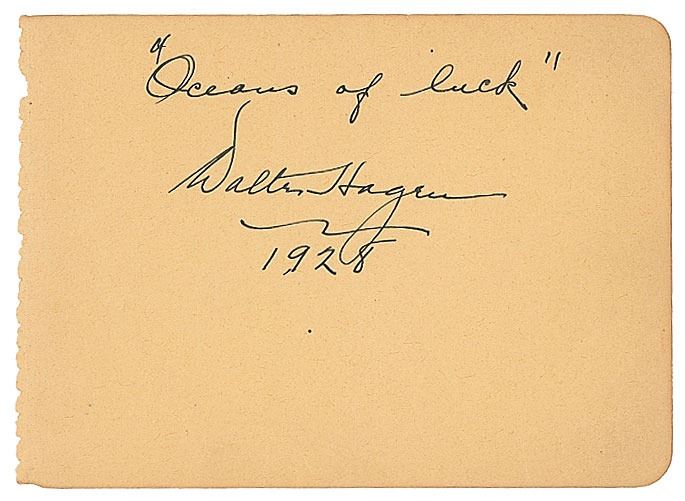 "Oceans of luck"
Walter Hagen
1928